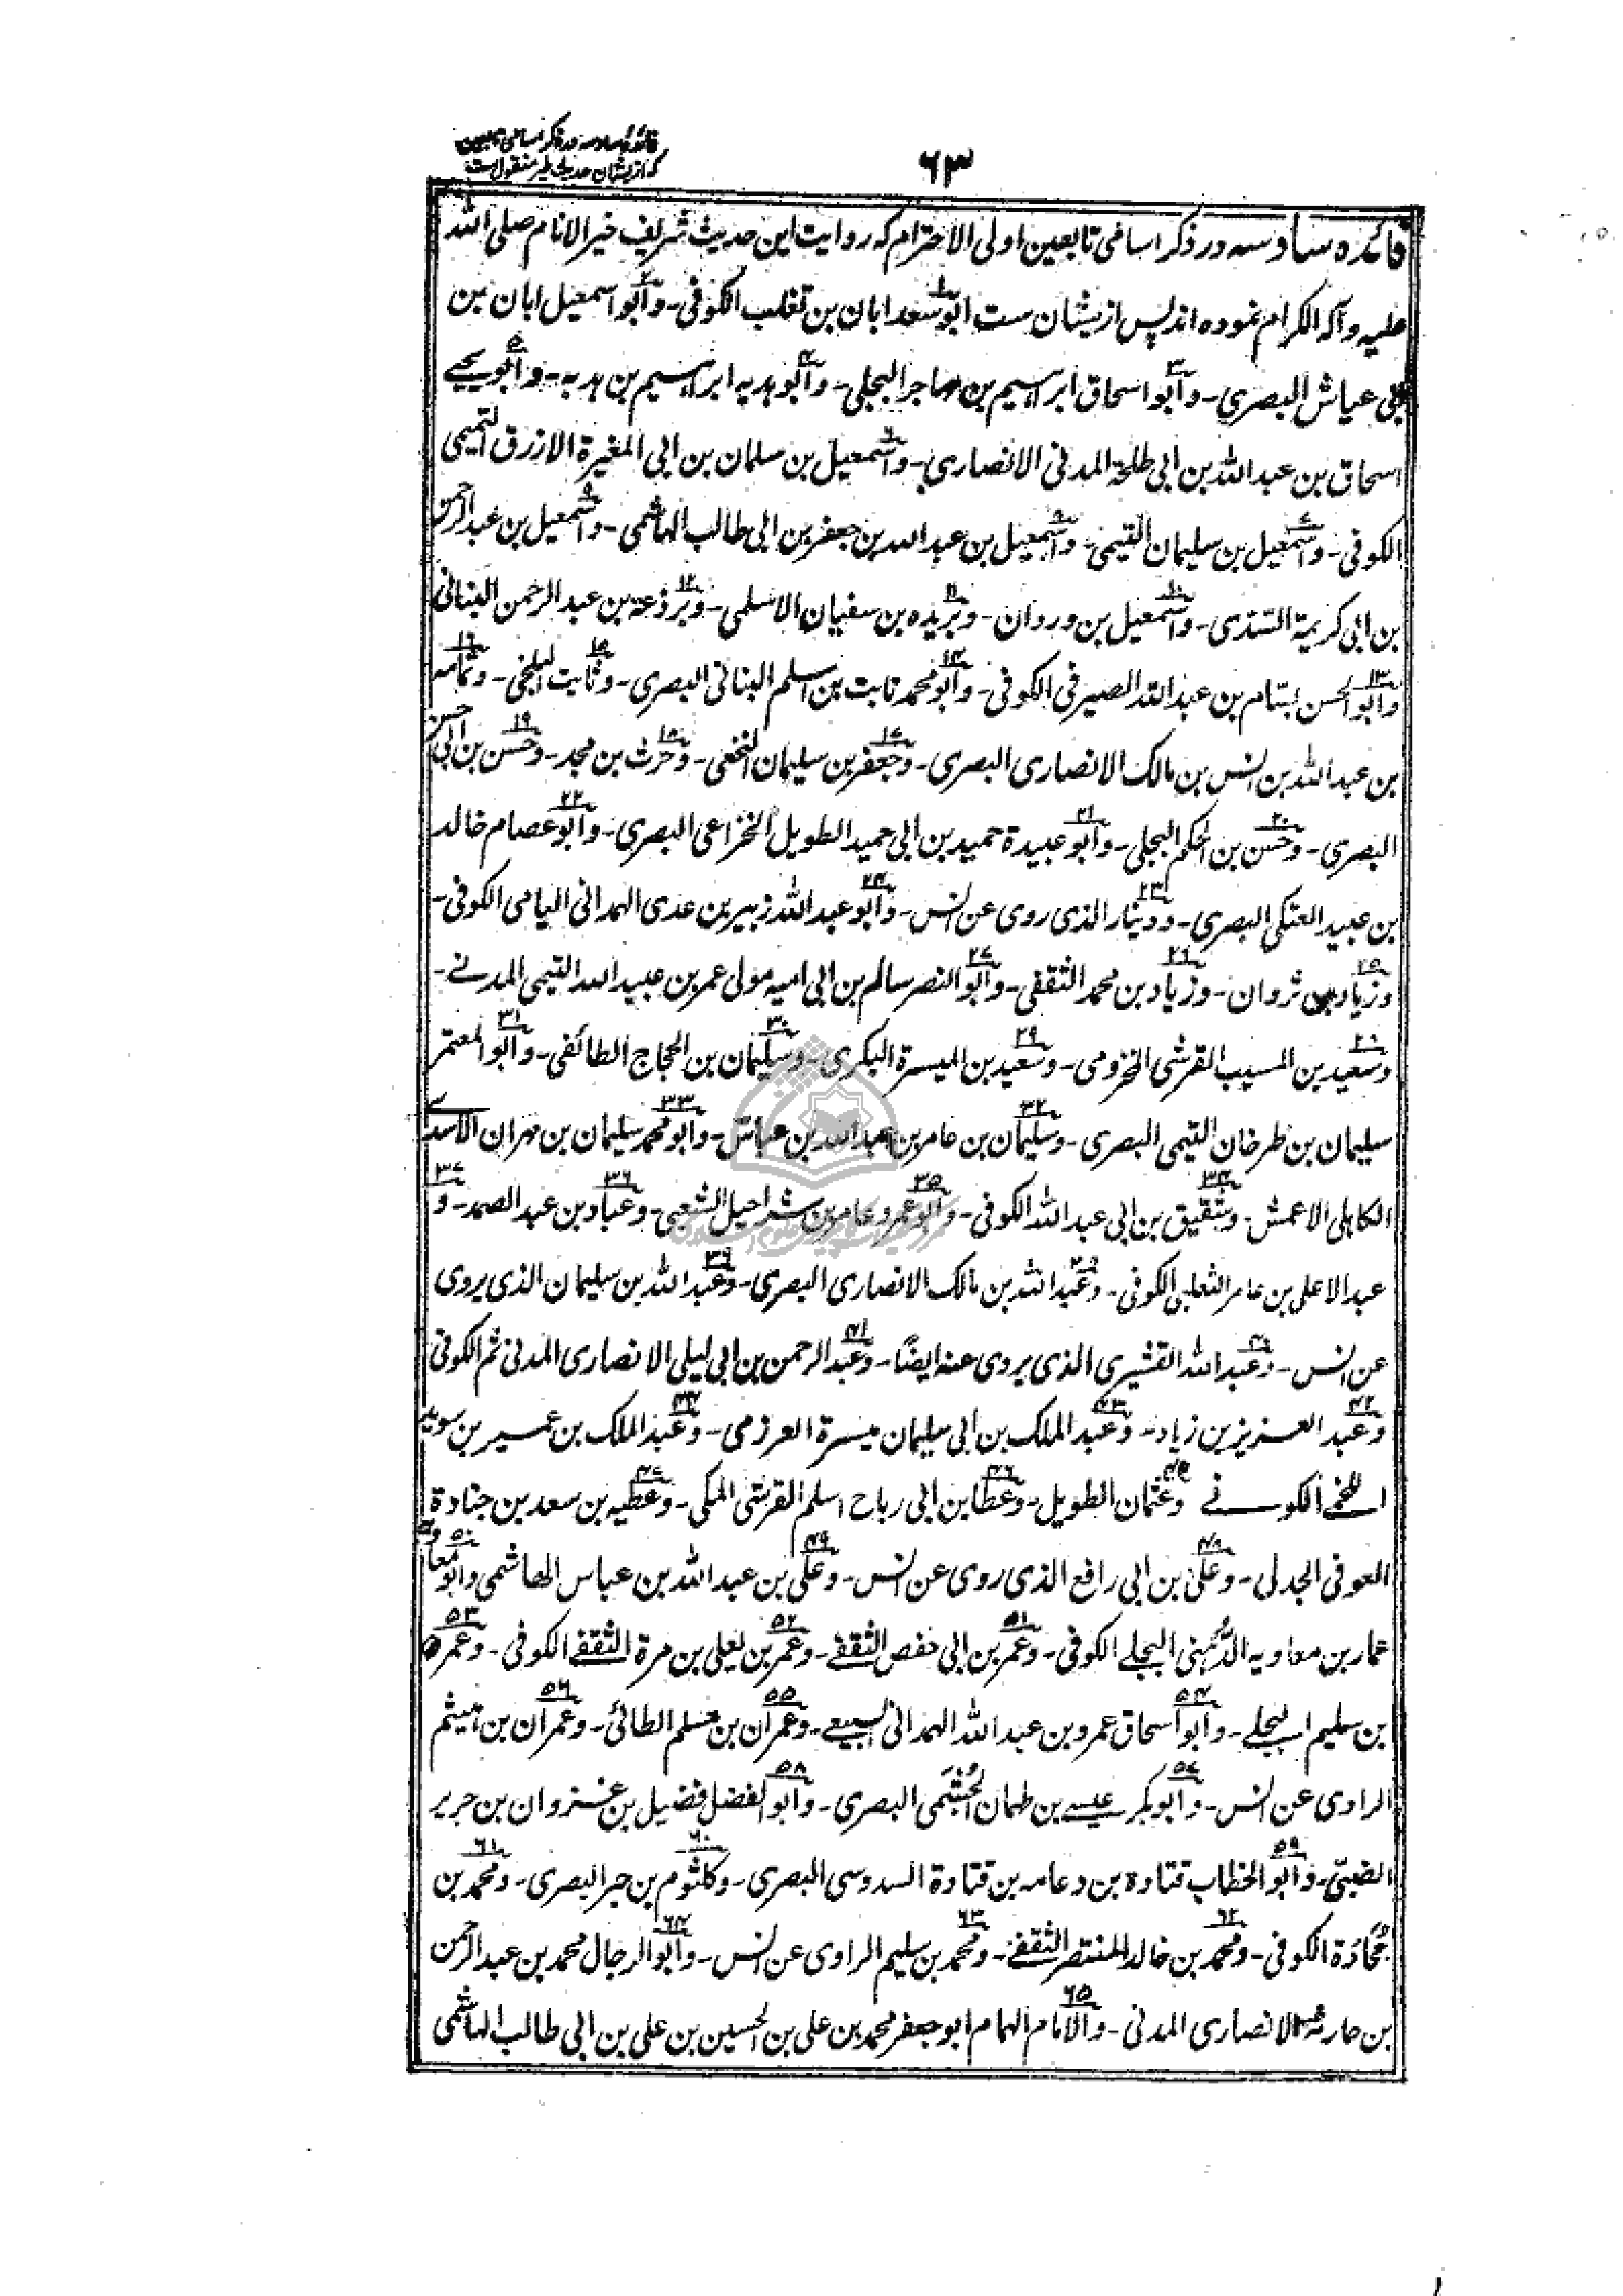 فائده سادسه در ذکر اسامی تابعین
که ازیشان حدیث طیر منقول است
۶۳
فائده سادسه در ذکر اسامی تابعین اولی الاحترام که روایت این حدیث شریف خیر الانام صلی الله
علیه و آله الکرام نموده اند پس ازیشان ست ابو سعد ابان بن تغلب الکوفی - و ابو اسمعیل ابان بن
ابی عیاش البصری - و ابو اسحاق ابراهیم بن مهاجر البجلی - و ابو هدبه ابراهیم بن هدبه - و ابو یحیے
اسحاق بن عبد الله بن ابی طلحة المدنی الانصاری - و اسمعیل بن سلمان بن ابی المغیرة الازرق التمیمی
الکوفی - و اسمعیل بن سلیمان التیمی - و اسمعیل بن عبد الله بن جعفر بن ابی طالب الهاشمی - و اسمعیل بن عبد الرحمن
بن ابی کریمة السّدی - و اسمعیل بن وردان - و بریده بن سفیان الاسلمی - و برذعة بن عبد الرحمن البنانی
و ابو الحسن بسّام بن عبد الله الصیرفی الکوفی - و ابو محمد ثابت بن اسلم البنانی البصری - و ثابت البلخی - و ثمامه
بن عبد الله بن انس بن مالک الانصاری البصری - و جعفر بن سلیمان النخعی - و حرث بن محمد - و حسن بن ابی الحسن
البصری - و حسن بن الحکم البجلی - و ابو عبیدة حمید بن ابی حمید الطویل الخزاعی البصری - و ابو عصام خالد
بن عبید العتکی البصری - و دینار الذی روی عن انس - و ابو عبد الله زبیر بن عدی الهمدانی الیامی الکوفی -
و زیاد بن ثروان - و زیاد بن محمد الثقفی - و ابو النضر سالم بن ابی امیه مولی عمر بن عبید الله التیمی المدنے -
و سعید بن المسیب القرشی المخزومی - و سعید بن المیسرة البکری - و سلیمان بن الحجاج الطائفی - و ابو المعتمر
سلیمان بن طرخان التیمی البصری - و سلیمان بن عامر بن عبد الله بن عباس - و ابو محمد سلیمان بن مهران الاسدے
الکاهلی الاعمش - و شقیق بن ابی عبد الله الکوفی - و ابو عمرو عامر بن شراحیل الشعبی - و عباد بن عبد الصمد - و
عبد الاعلی بن عامر الثعلبی الکوفی - و عبد الله بن مالک الانصاری البصری - و عبد الله بن سلیمان الذی یروی
عن انس - و عبد الله القشیری الذی یروی عنه ایضًا - و عبد الرحمن بن ابی لیلی الانصاری المدنی ثم الکوفی
و عبد العزیز بن زیاد - و عبد الملک بن ابی سلیمان میسرة العرزمی - و عبد الملک بن عمیر بن سوید
اللخمی الکوفے و عثمان الطویل - و عطا بن ابی رباح اسلم القرشی المکی - و عطیه بن سعد بن جنادة
العوفی الجدلی - و علی بن ابی رافع الذی روی عن انس - و علی بن عبد الله بن عباس الهاشمی و ابو معاویه
عمار بن معاویه الدُّهنی البجلے الکوفی - و عمر بن ابی حفص الثقفے - و عمر بن یعلی بن مرة الثقفے الکوفی - و عمر
بن سلیم البجلے - و ابو اسحاق عمرو بن عبد الله الهمدانی السبیعے - و عمران بن مسلم الطائی - و عمران بن هیثم
الراوی عن انس - و ابو بکر عیسے بن طهمان الجشمی البصری - و ابو الفضل فضیل بن غزوان بن جریر
الضبّی - و ابو الخطاب قتادة بن دعامه بن قتادة السدوسی البصری - و کلثوم بن جبر البصری - و محمد بن
جُحادَة الکوفی - و محمد بن خالد المنتصر الثقفے - و محمد بن سلیم الراوی عن انس - و ابو الرجال محمد بن عبد الرحمن
بن حارثة الانصاری المدنی - و الامام الهمام ابو جعفر محمد بن علی بن الحسین بن علی بن ابی طالب الهاشمی